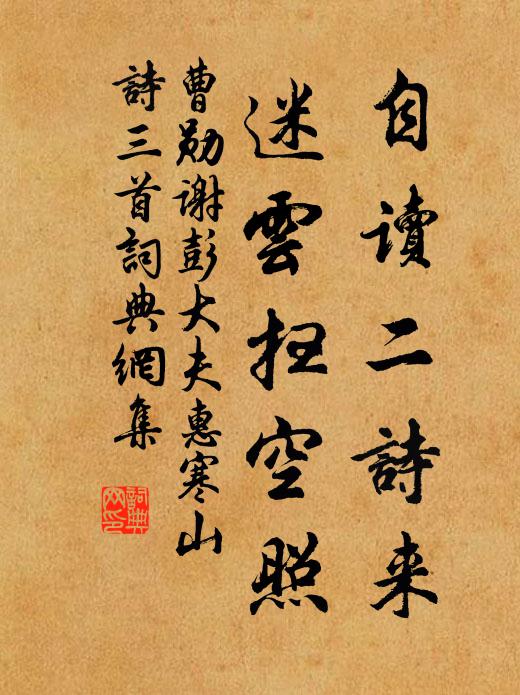 自读二詩来
迷雲扫空照
曹勋谢彭大夫惠寒山
詩三首詞典網集
詞典网印